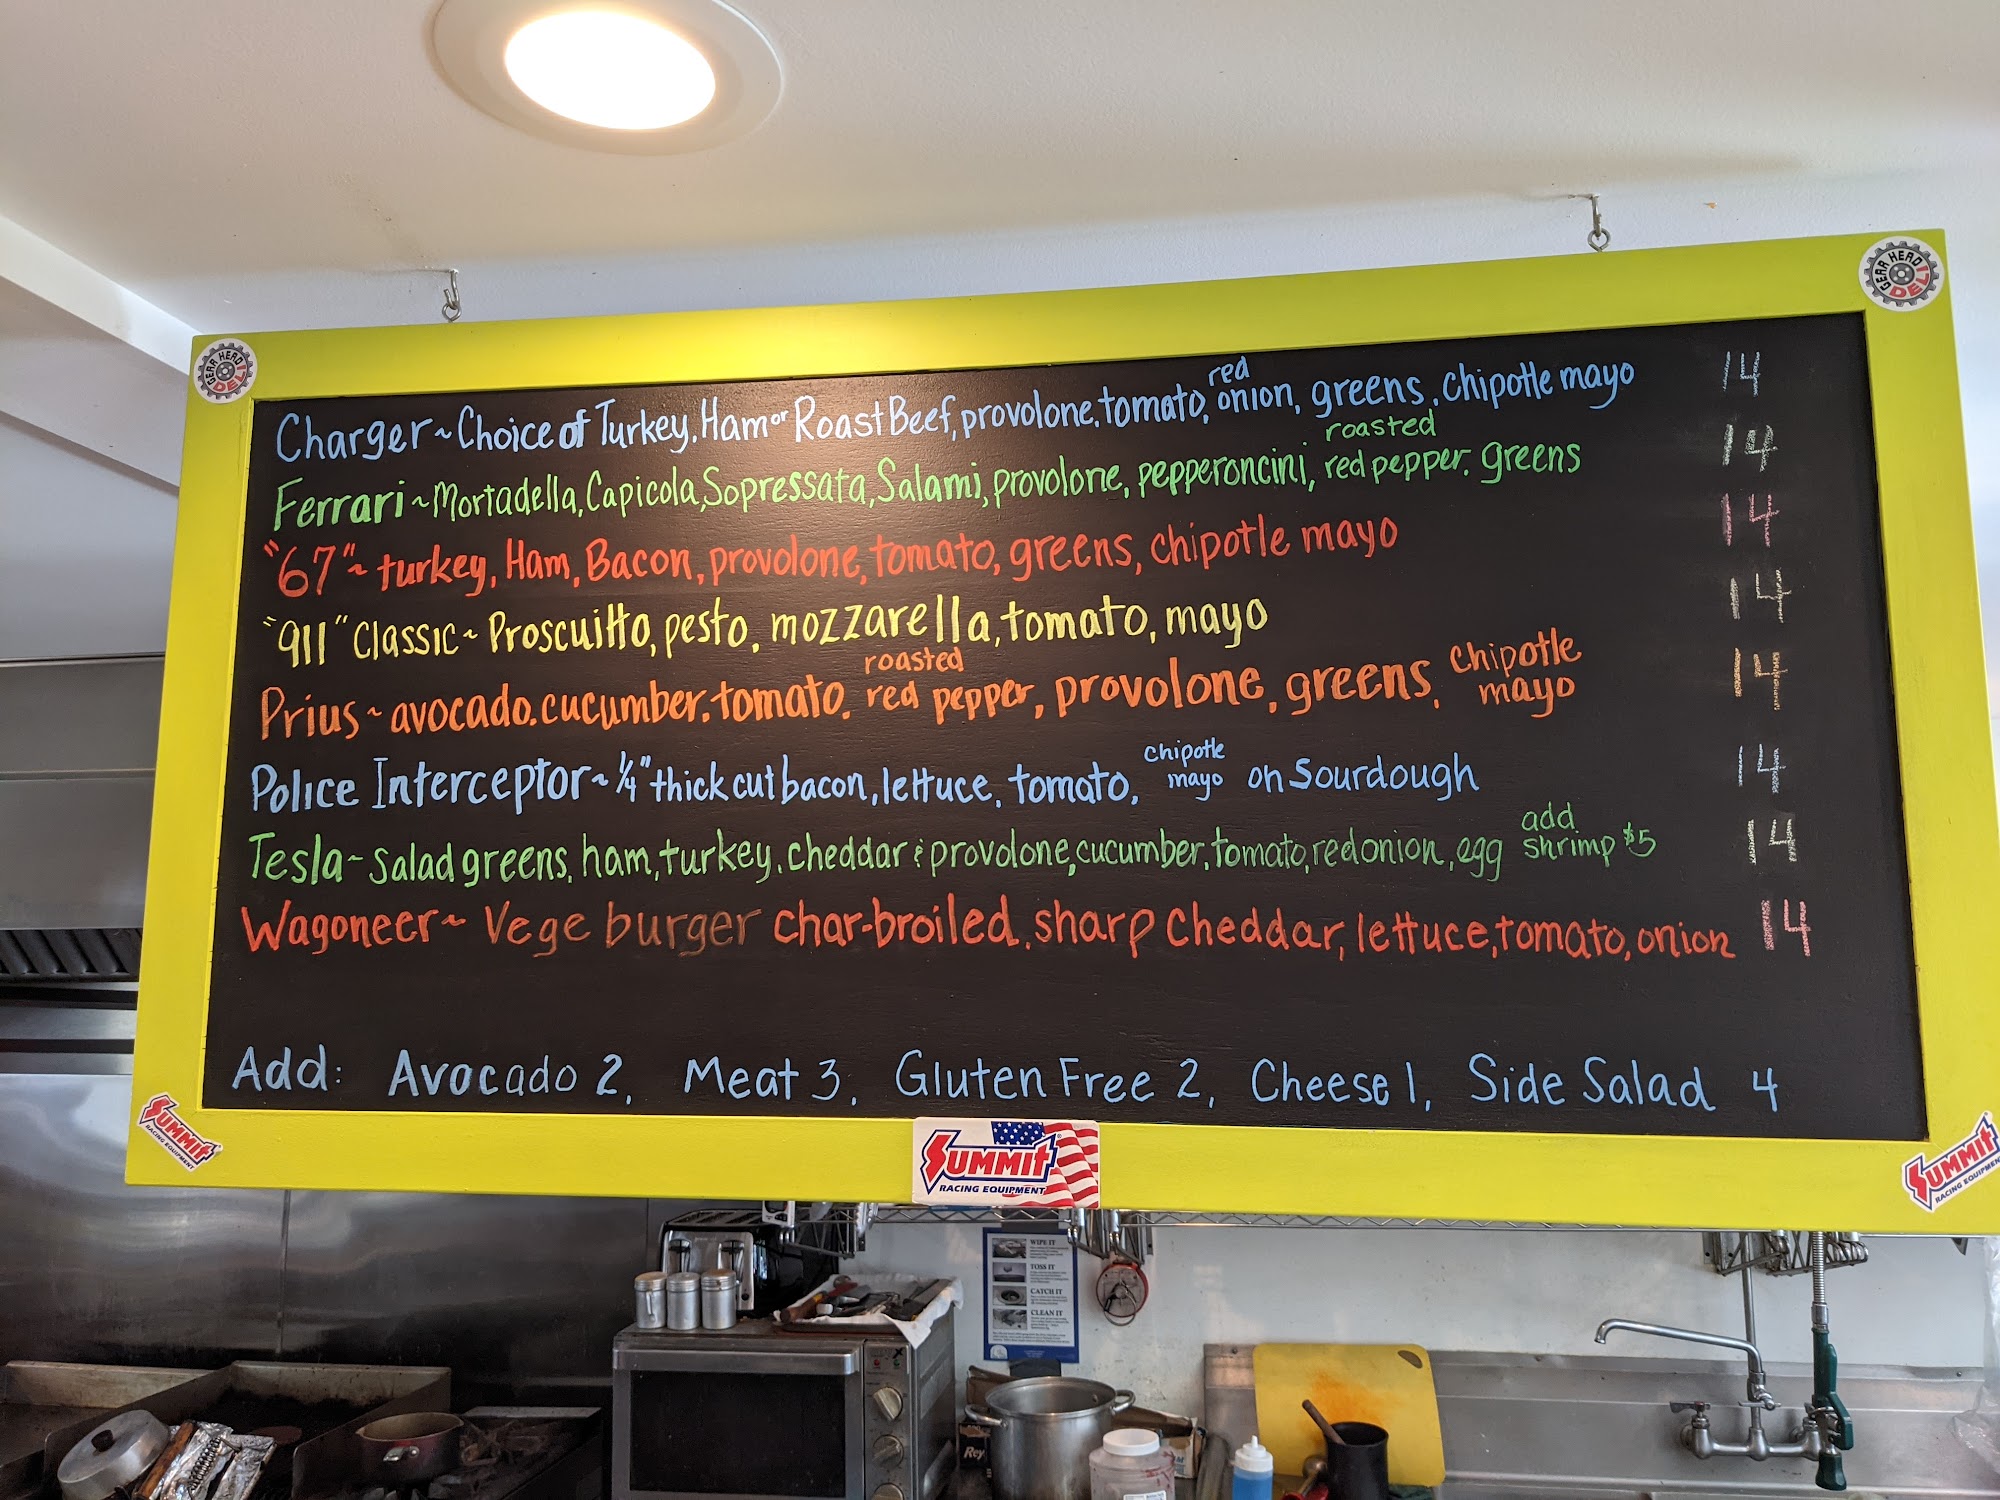 GEAR HEAD DELI
GEAR HEAD DELI
Charger ~ Choice of Turkey, Ham or Roast Beef, provolone, tomato, red onion, greens, chipotle mayo 14
Ferrari ~ Mortadella, Capicola, Sopressata, Salami, provolone, pepperoncini, roasted red pepper, greens 14
"67" ~ turkey, Ham, Bacon, provolone, tomato, greens, chipotle mayo 14
"911" Classic ~ Proscuitto, pesto, mozzarella, tomato, mayo 14
Prius ~ avocado, cucumber, tomato, roasted red pepper, provolone, greens, chipotle mayo 14
Police Interceptor ~ 1/4" thick cut bacon, lettuce, tomato, chipotle mayo on Sourdough 14
Tesla ~ Salad greens, ham, turkey, cheddar & provolone, cucumber, tomato, red onion, egg add shrimp $5 14
Wagoneer ~ Vege burger char-broiled, sharp Cheddar, lettuce, tomato, onion 14
Add: Avocado 2, Meat 3, Gluten Free 2, Cheese 1, Side Salad 4
SUMMIT RACING EQUIPMENT
SUMMIT RACING EQUIPMENT
SUMMIT RACING EQUIPMENT
WIPE IT
TOSS IT
CATCH IT
CLEAN IT
Rey